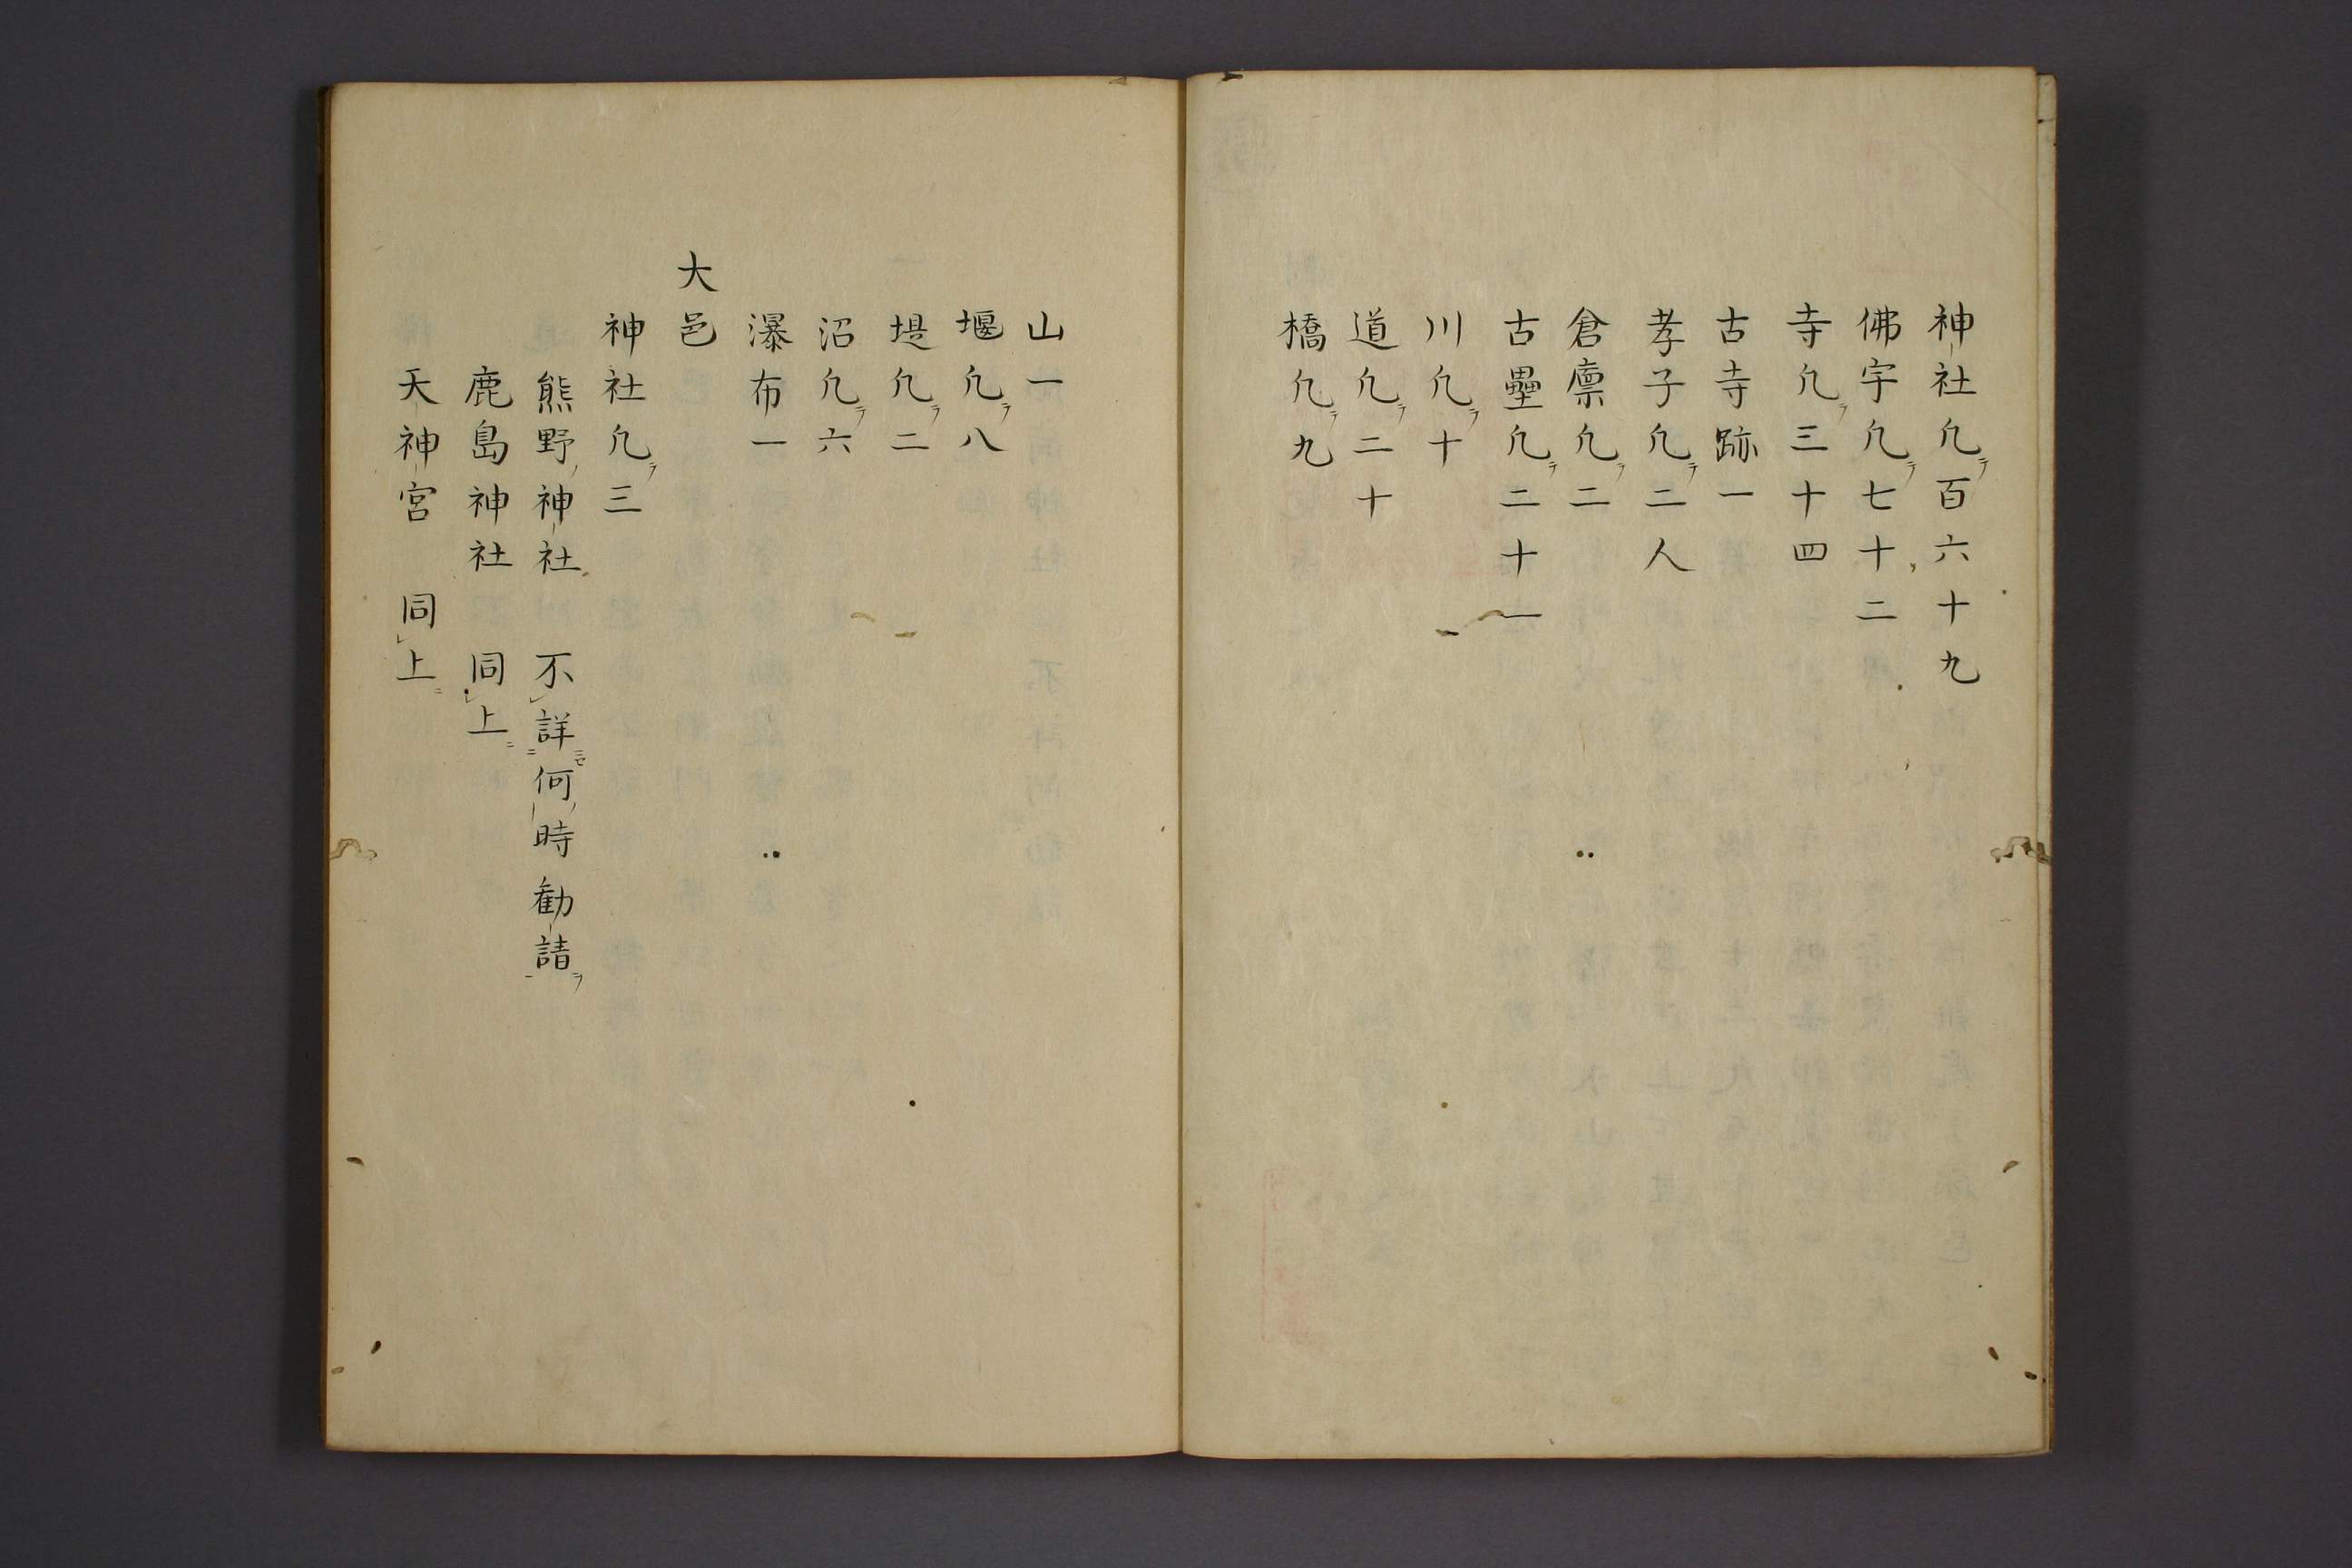 神社凢百六十九
佛宇凢七十二
寺凢三十四
古寺跡一
孝子凢二人
倉廩凢二
古壘凢二十一
川凢十
道凢二十
橋凢九
山一
堰凢八
堤凢二
沼凢六
瀑布一
大邑
神社凢三
熊野神社 不詳何時勧請
鹿島神社 同上
天神宮 同上